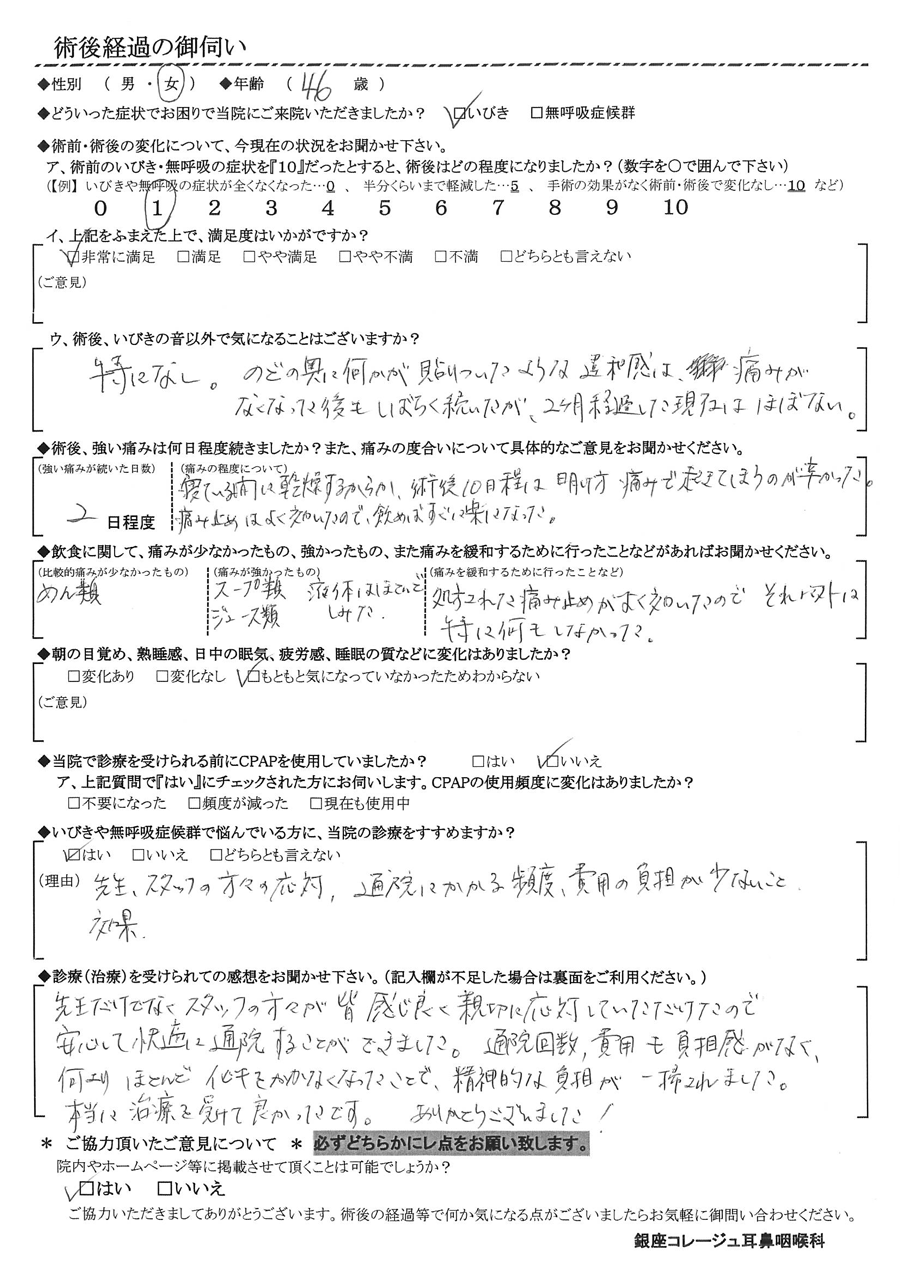 術後経過の御伺い
◆性別 （ 男 ・ 女 ） ◆年齢 （ 46 歳 ）
◆どういった症状でお困りで当院にご来院いただきましたか？ ☑いびき □無呼吸症候群
◆術前・術後の変化について、今現在の状況をお聞かせ下さい。
ア、術前のいびき・無呼吸の症状を『10』だったとすると、術後はどの程度になりましたか？（数字を〇で囲んで下さい）
（【例】 いびきや無呼吸の症状が全くなくなった…0 、 半分くらいまで軽減した…5 、 手術の効果がなく術前・術後で変化なし…10 など）
0 1 2 3 4 5 6 7 8 9 10
イ、上記をふまえた上で、満足度はいかがですか？
☑非常に満足 □満足 □やや満足 □やや不満 □不満 □どちらとも言えない
（ご意見）
ウ、術後、いびきの音以外で気になることはございますか？
特になし。 のどの奥に何かが貼りついたような違和感は、痛みが
なくなった後もしばらく続いたが、2ヶ月経過した現在はほぼない。
◆術後、強い痛みは何日程度続きましたか？また、痛みの度合いについて具体的なご意見をお聞かせください。
（強い痛みが続いた日数） （痛みの程度について）
寝ている間に乾燥するからか、術後10日程は明け方痛みで起きてしまうのが辛かった。
2 日程度 痛み止めはよく効いたので、飲めばすぐに楽になった。
◆飲食に関して、痛みが少なかったもの、強かったもの、また痛みを緩和するために行ったことなどがあればお聞かせください。
（比較的痛みが少なかったもの） （痛みが強かったもの） （痛みを緩和するために行ったことなど）
めん類 スープ類 液体はほとんど 処方された痛み止めがよく効いたので それ以外は
ジュース類 しみた. 特に何もしなかった。
◆朝の目覚め、熟睡感、日中の眠気、疲労感、睡眠の質などに変化はありましたか？
□変化あり □変化なし ☑もともと気になっていなかったためわからない
（ご意見）
◆当院で診療を受けられる前にCPAPを使用していましたか？ □はい ☑いいえ
ア、上記質問で『はい』にチェックされた方にお伺いします。CPAPの使用頻度に変化はありましたか？
□不要になった □頻度が減った □現在も使用中
◆いびきや無呼吸症候群で悩んでいる方に、当院の診療をすすめますか？
☑はい □いいえ □どちらとも言えない
（理由） 先生、スタッフの方々の応対, 通院にかかる頻度、費用の負担が少ないこと.
効果.
◆診療（治療）を受けられての感想をお聞かせ下さい。（記入欄が不足した場合は裏面をご利用ください。）
先生だけでなくスタッフの方々が皆感じ良く親切に応対していただけたので
安心して快適に通院することができました。 通院回数, 費用も負担感がなく、
何より ほとんどイビキをかかなくなったことで、精神的な負担が一掃されました。
本当に治療を受けて良かったです。 ありがとうございました！
＊ ご協力頂いたご意見について ＊ 必ずどちらかにレ点をお願い致します。
院内やホームページ等に掲載させて頂くことは可能でしょうか？
☑はい □いいえ
ご協力いただきましてありがとうございます。術後の経過等で何か気になる点がございましたらお気軽に御問い合わせください。
銀座コレージュ耳鼻咽喉科